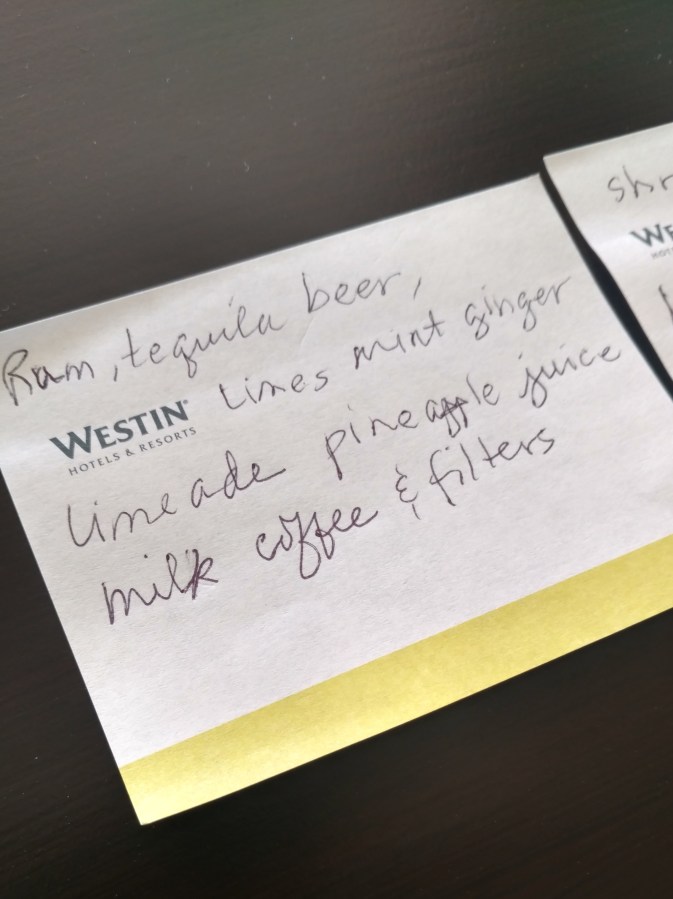 Rum, tequila beer,
Limes mint ginger
WESTIN®
HOTELS & RESORTS
limeade pineapple juice
milk coffee & filters
shr
WE
HOT